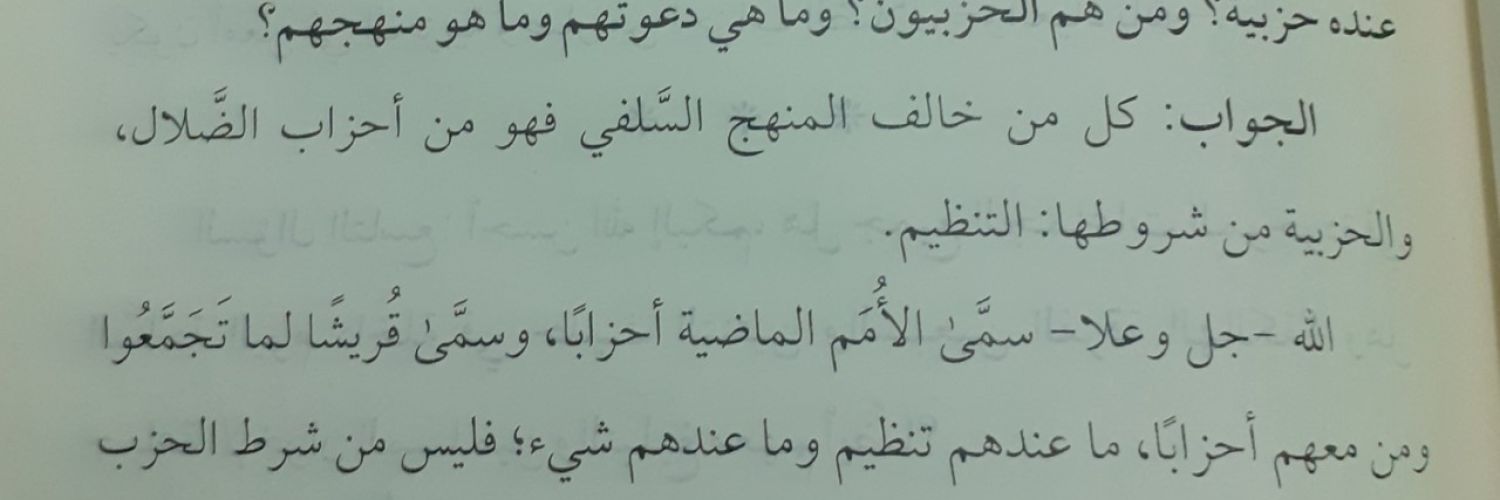 عنده حزبية؟ ومن هم الحزبيون؟ وما هي دعوتهم وما هو منهجهم؟
الجواب: كل من خالف المنهج السَّلفي فهو من أحزاب الضَّلال،
والحزبية من شروطها: التنظيم.
الله -جل وعلا- سمَّىٰ الأُمَم الماضية أحزابًا، وسمَّىٰ قُريشًا لما تَجَمَّعُوا
ومن معهم أحزابًا، ما عندهم تنظيم وما عندهم شيء؛ فليس من شرط الحزب